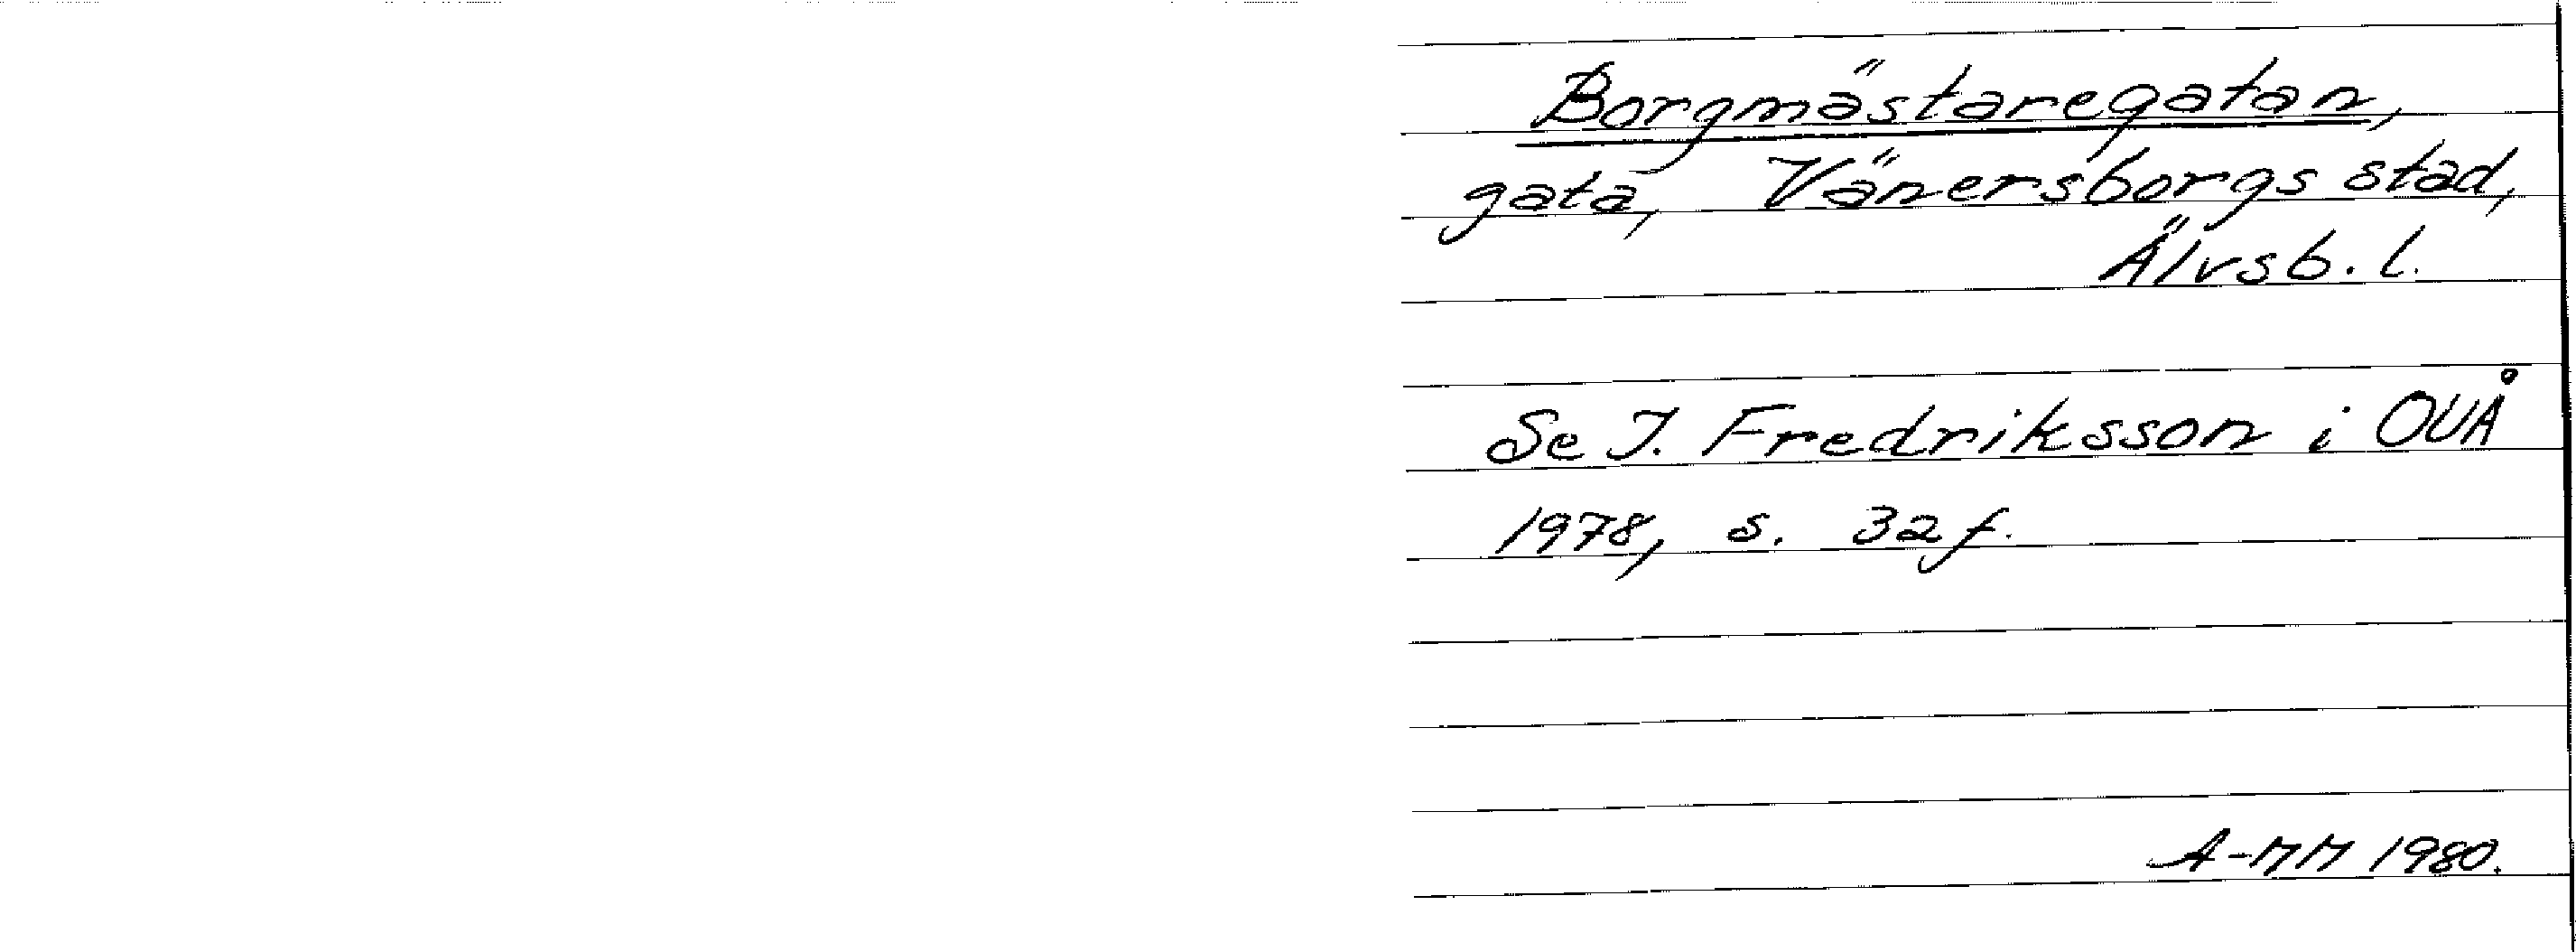 Borgmästaregatan,
gata, Vänersborgs stad,
Älvsb. l.
Se I. Fredriksson i OUÅ
1978, s. 32 f.
A-MM 1980.